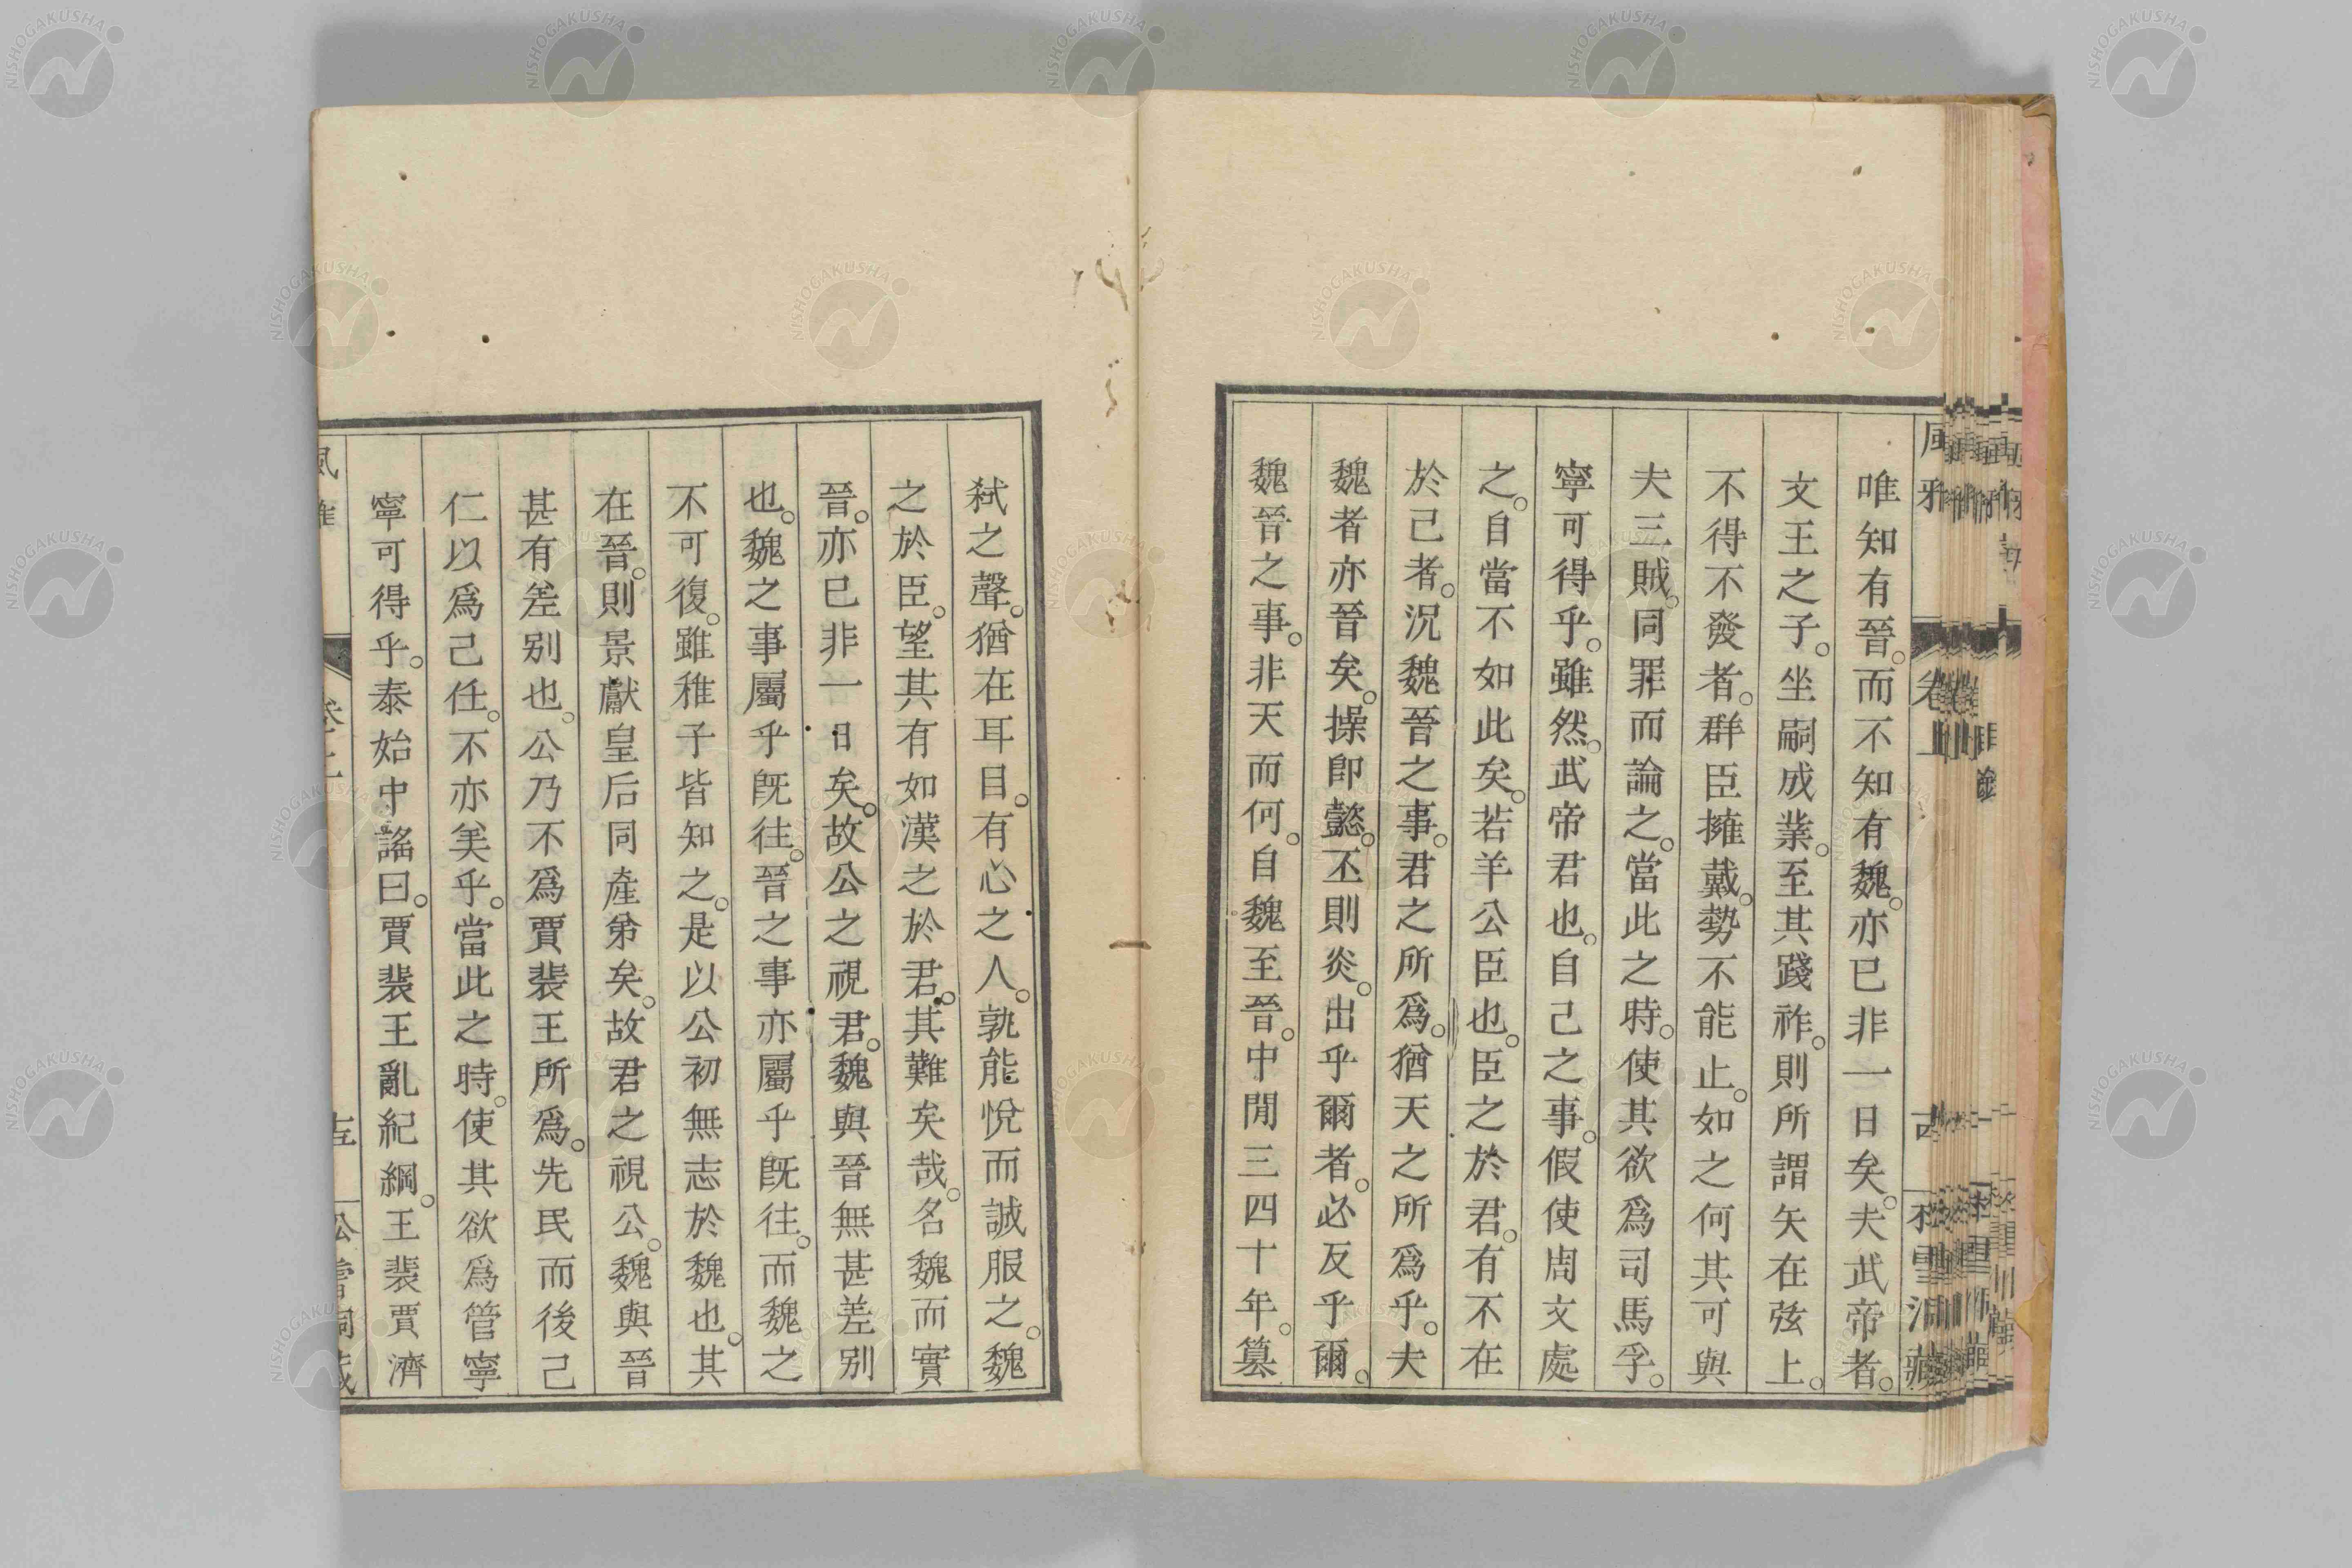 唯知有晉。而不知有魏。亦已非一日矣。夫武帝者。
文王之子。坐嗣成業。至其踐祚。則所謂矢在弦上。
不得不發者。群臣擁戴。勢不能止。如之何其可與
夫三賊。同罪而論之。當此之時。使其欲爲司馬孚。
寧可得乎。雖然。武帝君也。自己之事。假使周文處
之。自當不如此矣。若羊公臣也。臣之於君。有不在
於己者。況魏晉之事。君之所爲。猶天之所爲乎。夫
魏者亦晉矣。操卽懿。丕則炎。出乎爾者。必反乎爾。
魏晉之事。非天而何。自魏至晉。中閒三四十年。篡
弒之聲。猶在耳目。有心之人。孰能悅而誠服之。魏
之於臣。望其有如漢之於君。其難矣哉。名魏而實
晉。亦已非一日矣。故公之視君。魏與晉無甚差別
也。魏之事屬乎旣往。晉之事亦屬乎旣往。而魏之
不可復。雖稚子皆知之。是以公初無志於魏也。其
在晉。則景獻皇后同產弟矣。故君之視公。魏與晉
甚有差別也。公乃不爲賈裴王所爲。先民而後己
仁以爲己任。不亦美乎。當此之時。使其欲爲管寧
寧可得乎。泰始中謠曰。賈裴王亂紀綱。王裴賈濟
NISHOGAKUSHA